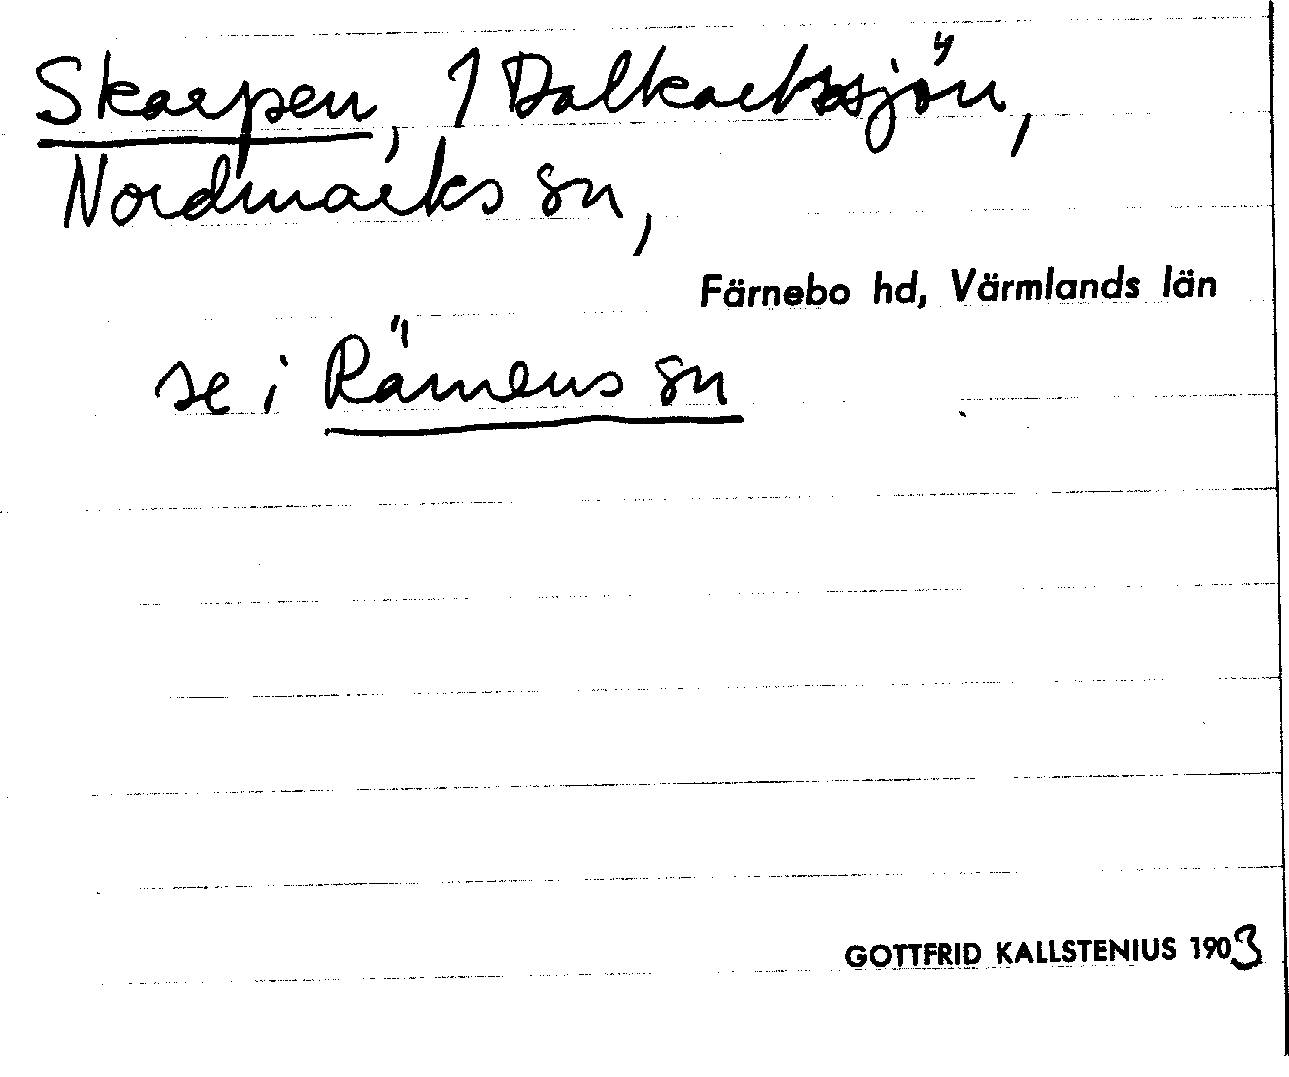 Skarpen, 1 Dalkarlssjön,
Nordmarks sn,
Färnebo hd, Värmlands län
se i Rämens sn
GOTTFRID KALLSTENIUS 1903